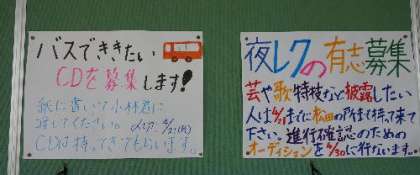 バスでききたい
CDを募集します!
紙に書いて小林君に
渡してください。〆切 4/21(火)
CDは持ってきてもらいます。
夜レクの有志募集
芸や歌、特技など披露したい
人は4/21までに松田の所まで持って来て
下さい。進行確認のための
オーディションを4/30に行ないます。